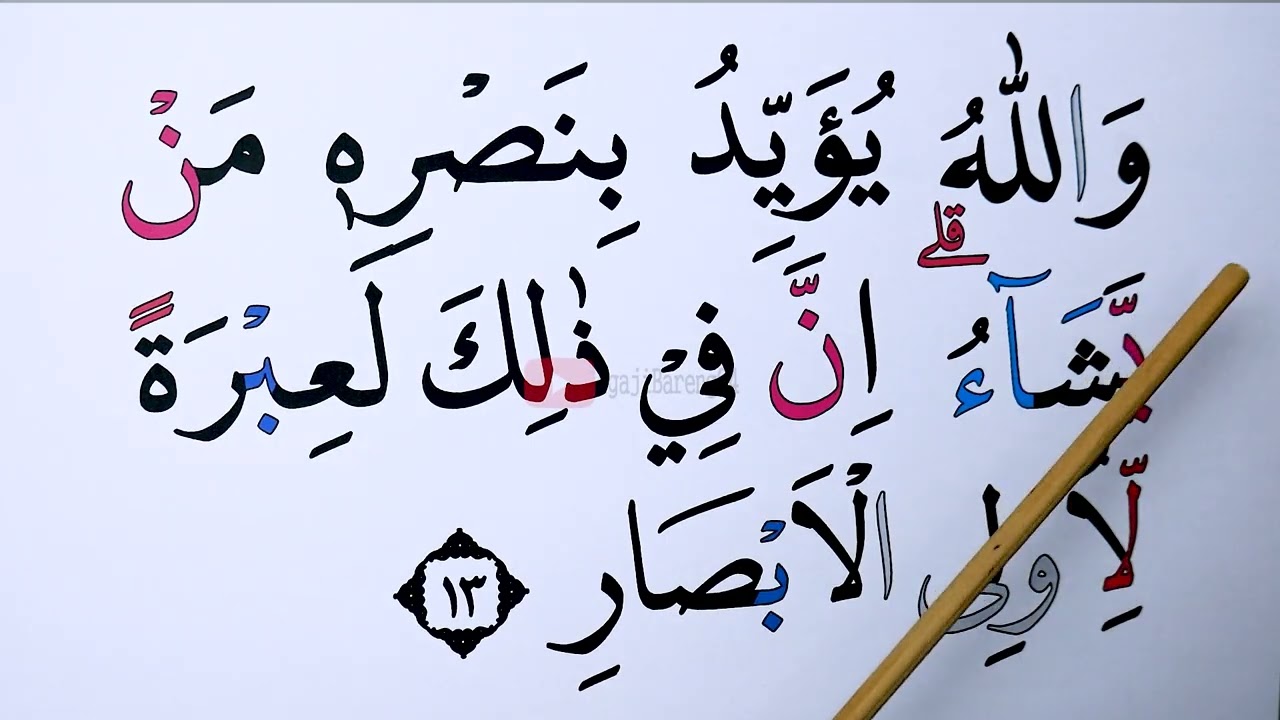 وَاللّٰهُ يُؤَيِّدُ بِنَصْرِهٖ مَنْ
يَّشَاۤءُ ۗ اِنَّ فِيْ ذٰلِكَ لَعِبْرَةً
لِّاُولِى الْاَبْصَارِ ١٣